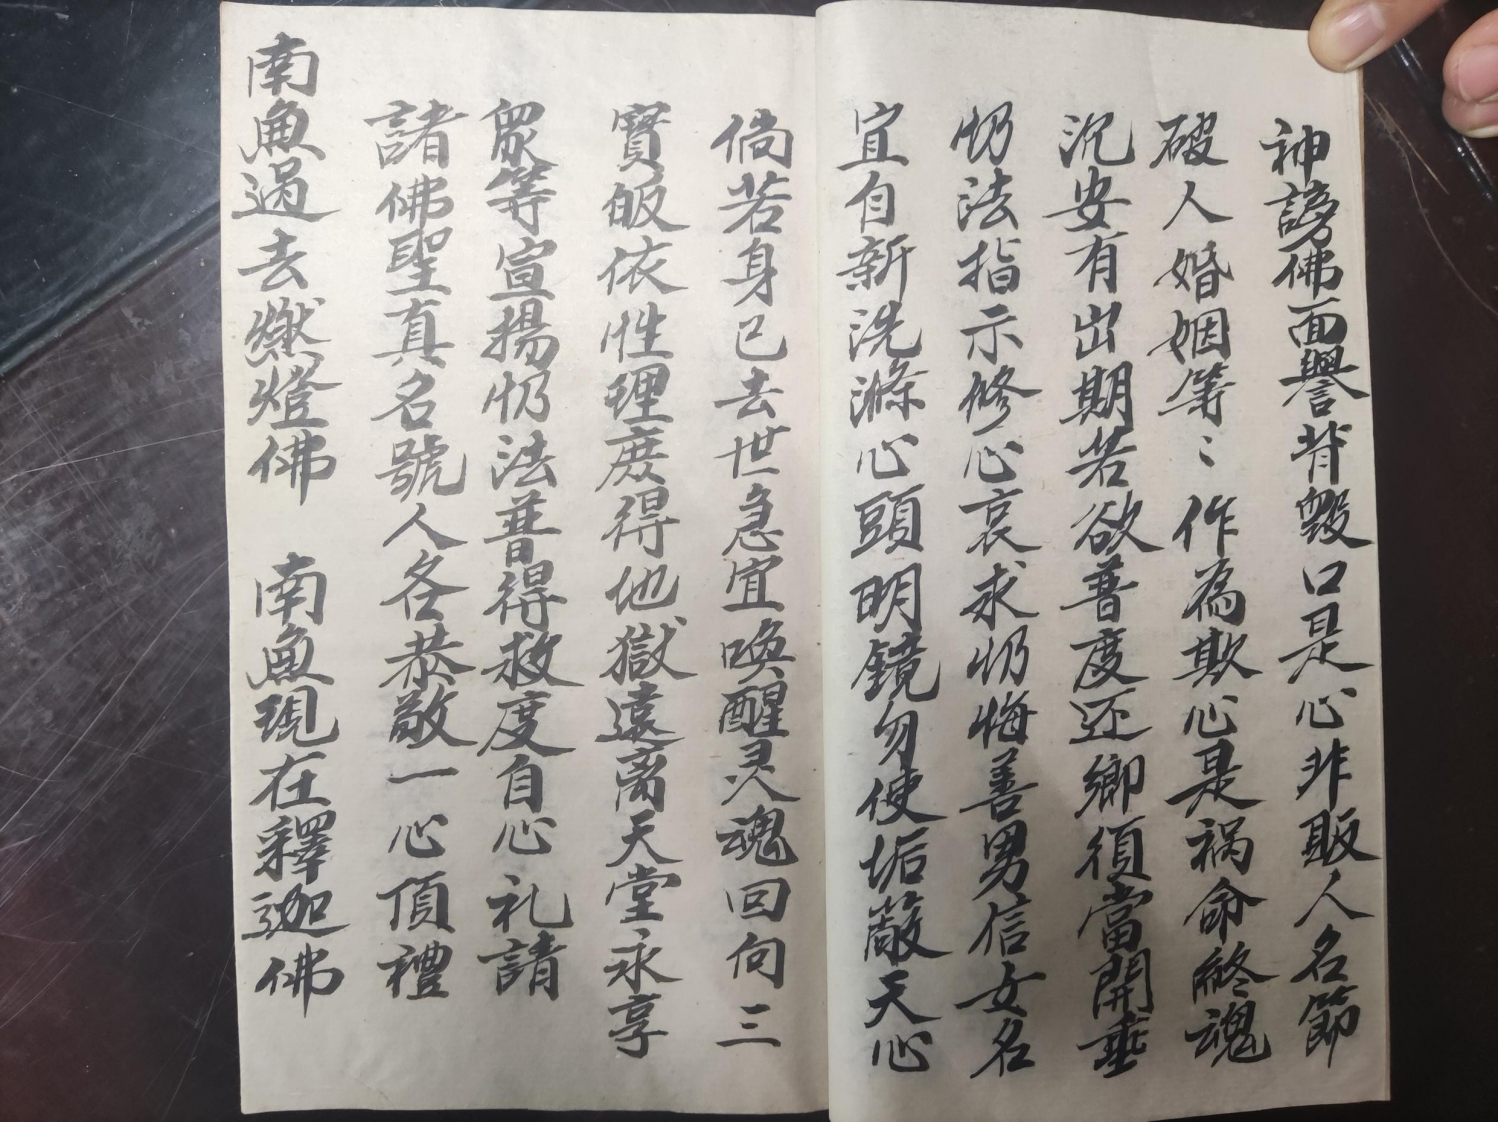 神謗佛面譽背毀口是心非販人名節
破人婚姻等〻作為欺心是禍命終魂
沉安有出期若欲普度还鄉須當開垂
忉法指示修心哀求忉悔善男信女名
宜自新洗滌心頭明鏡勿使垢蔽天心
倘若身已去世急宜喚醒灵魂回向三
寳皈依性理庶得地獄遠离天堂永享
眾等宣揚忉法普得救度自心礼請
諸佛聖真名號人各恭敬一心頂禮
南無過去燃燈佛 南無現在釋迦佛